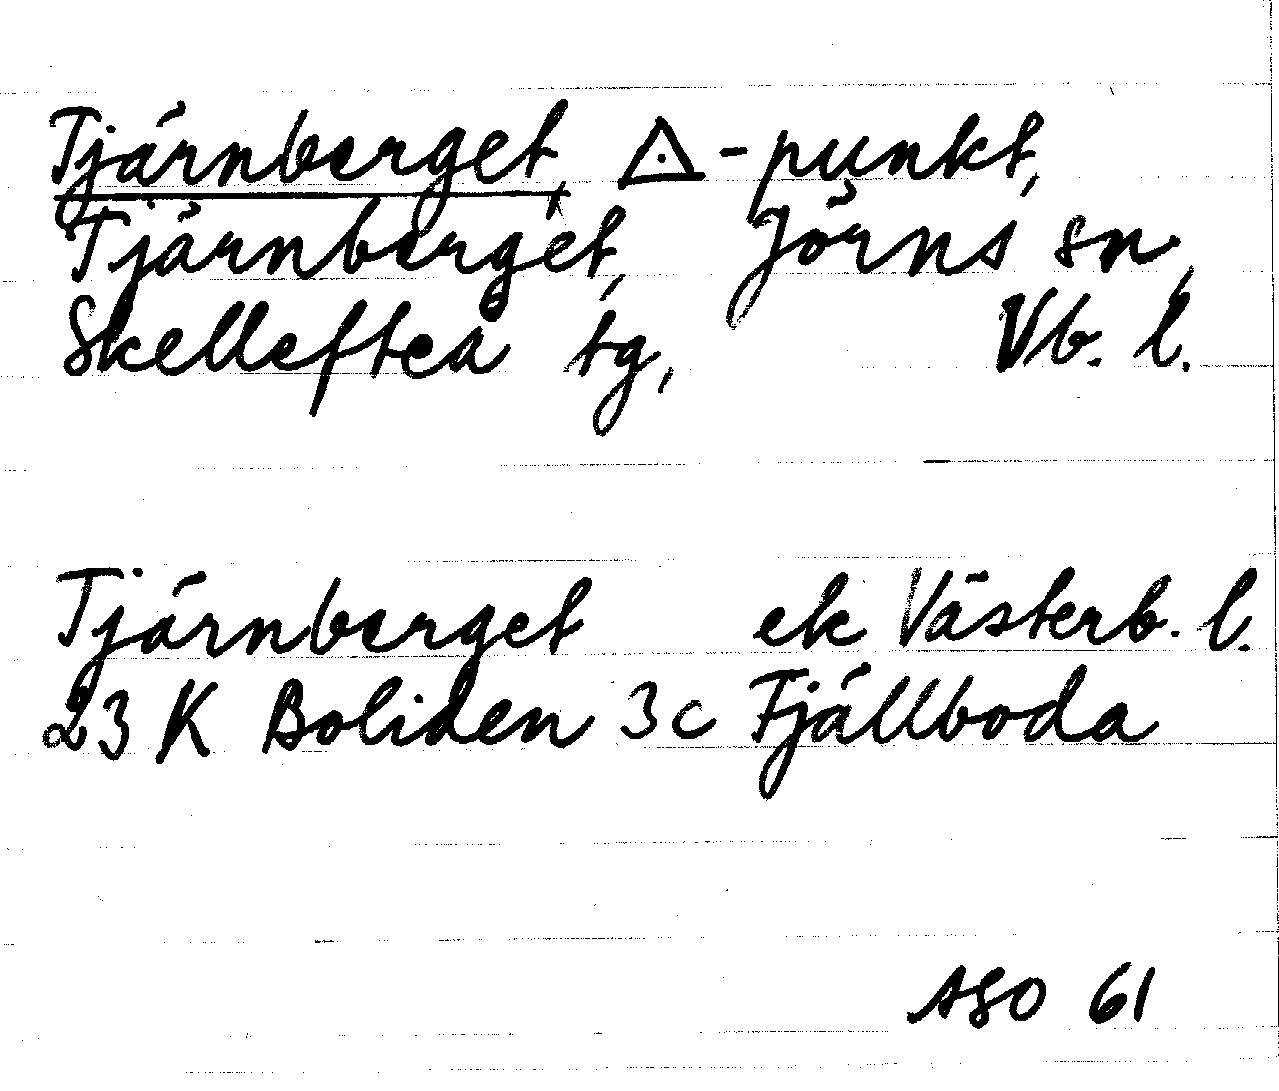 Tjärnberget, △-punkt,
Tjärnberget, Jörns sn,
Skellefteå tg, Vb. l.
Tjärnberget ek Västerb. l.
23 K Boliden 3c Fjällboda
ASO 61